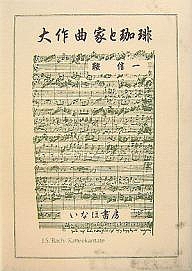 大作曲家と珈琲
信一
いなほ書房
J.S. Bach: Kaffeekantate